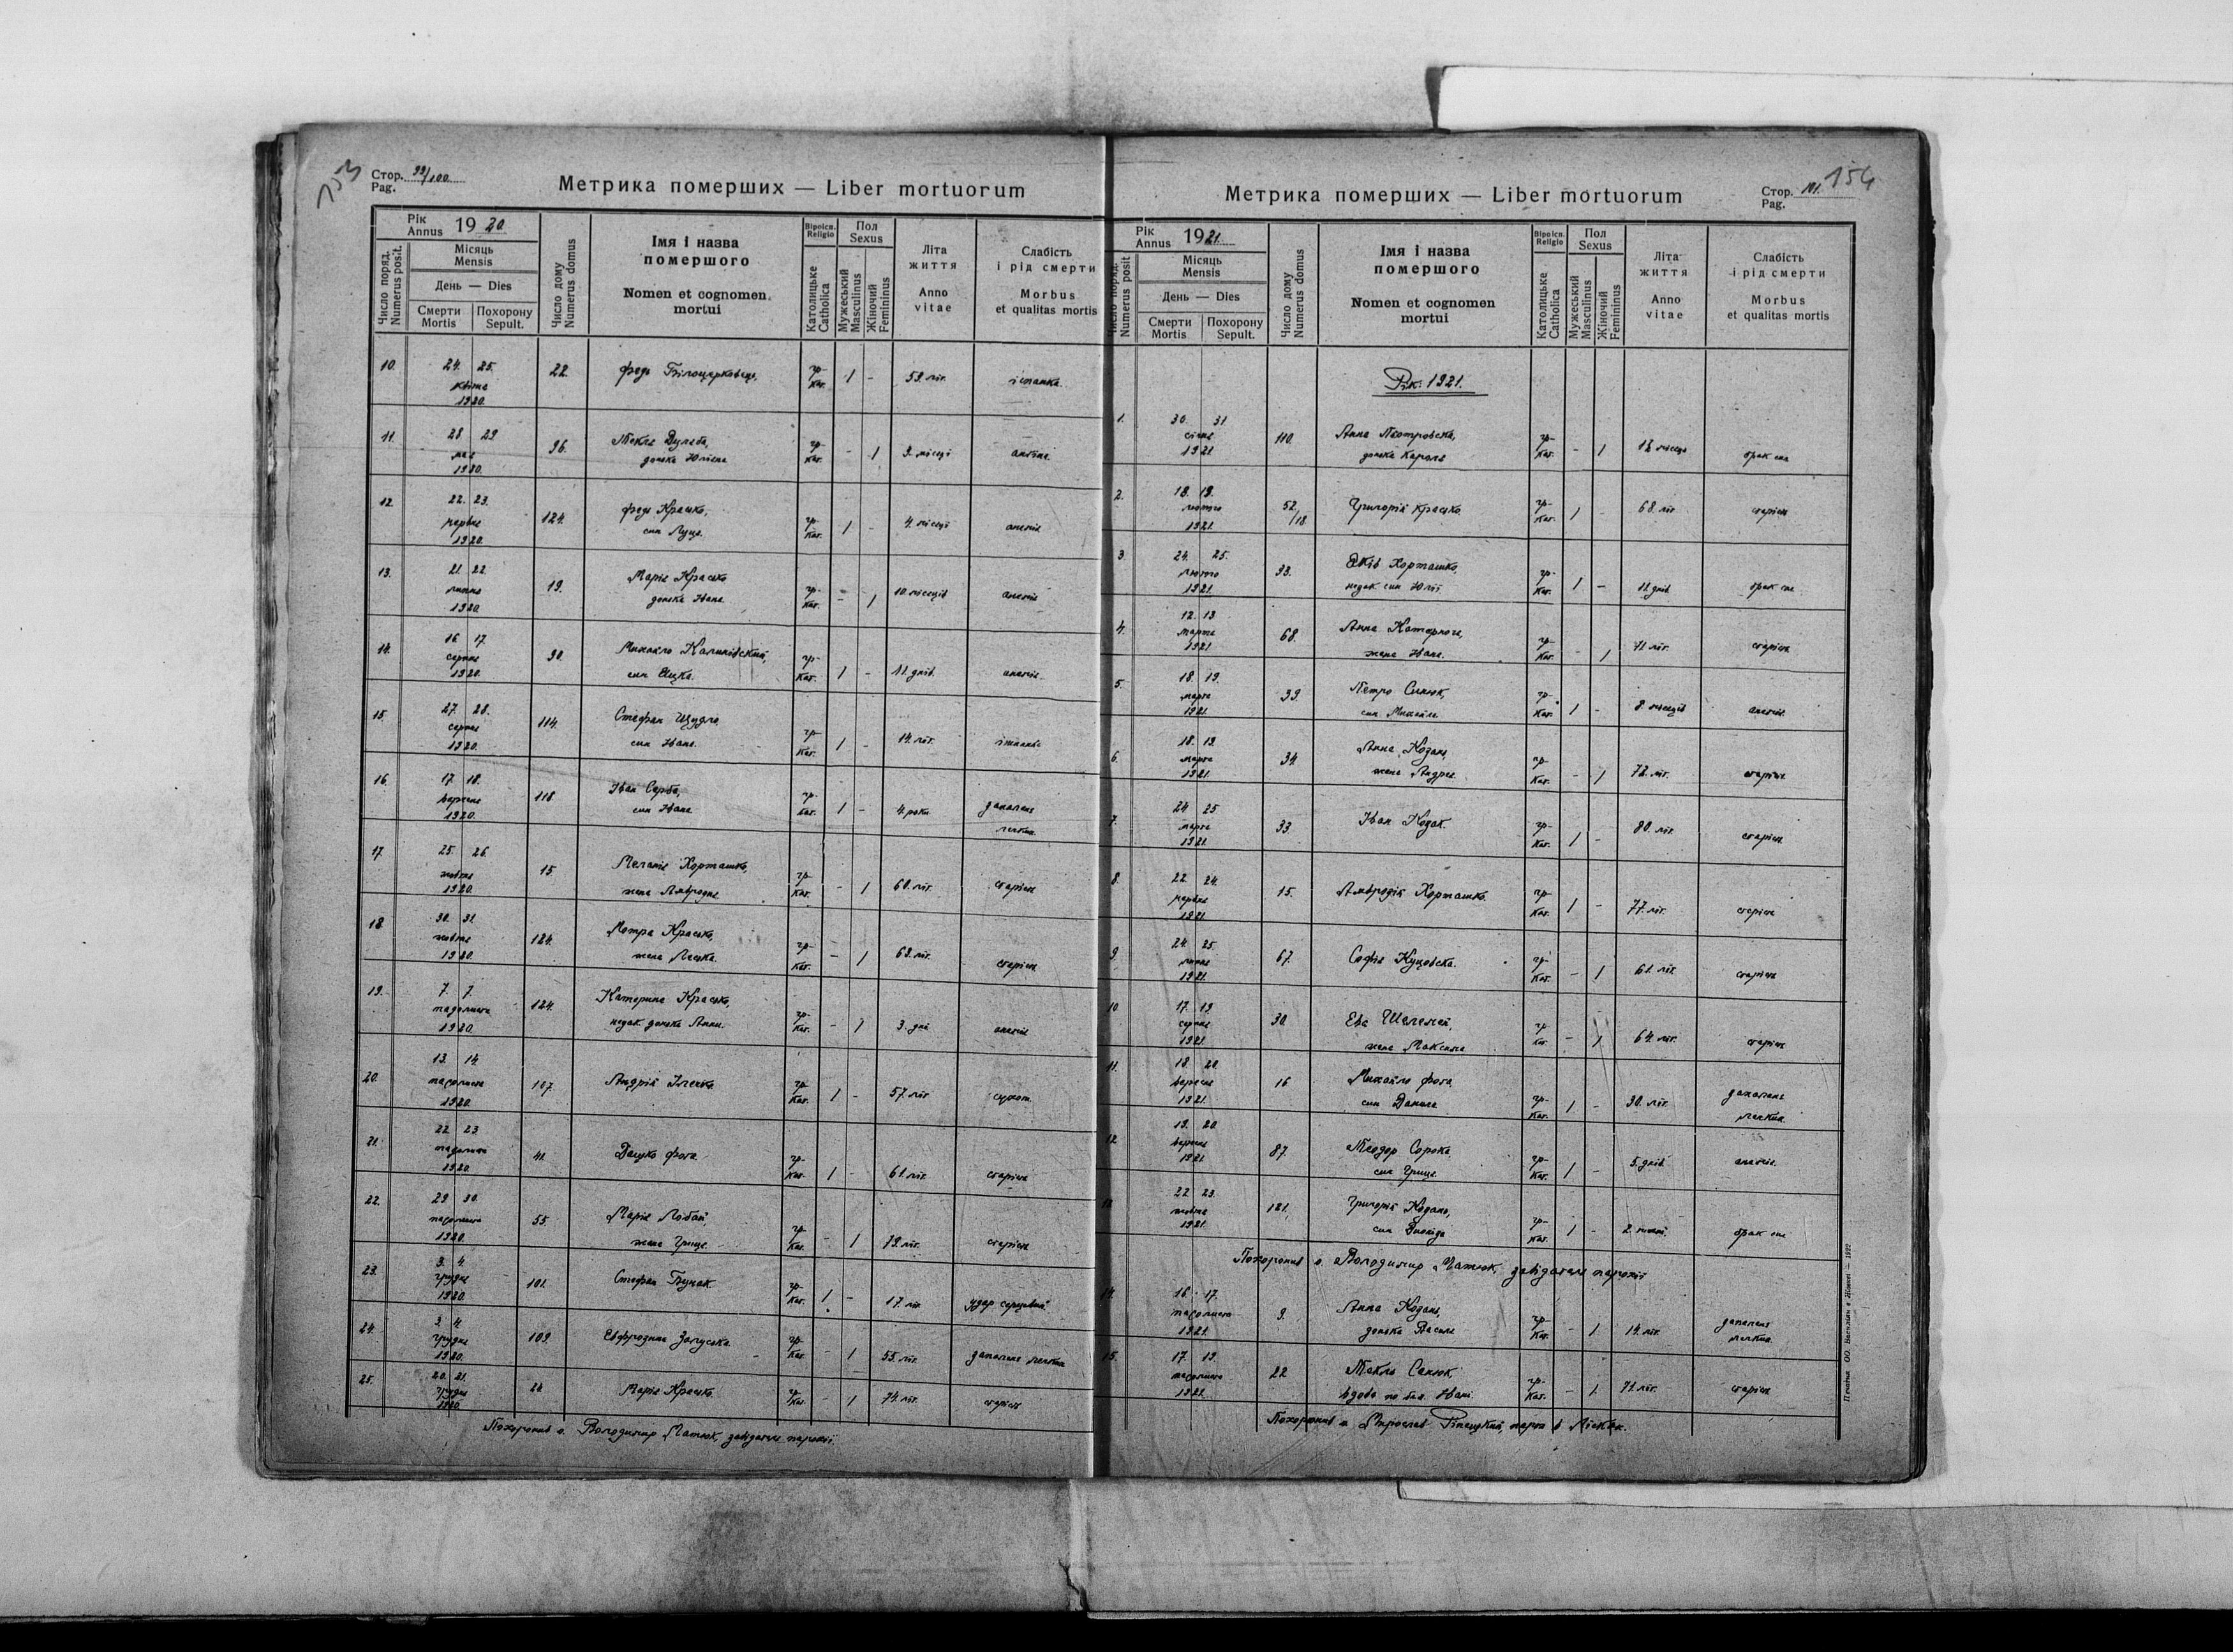 153
Стор. 99/100
Pag.
Метрика померших — Liber mortuorum
Рік
Annus 1920
Число поряд.
Numerus posit.
Місяць
Mensis
День — Dies
Смерти
Mortis
Похорону
Sepult.
Число дому
Numerus domus
Імя і назва
помершого
Nomen et cognomen
mortui
Віроісп.
Religio
Католицьке
Catholica
Пол
Sexus
Мужеський
Masculinus
Жіночий
Femininus
Літа
життя
Anno
vitae
Слабість
і рід смерти
Morbus
et qualitas mortis
10. 24. 25. 22. Федь гр- 1 - 59. літ.
квітня кат.
1920.
11. 28 29 96. Текля гр- - 1 9. місяці
мая донька Юліяна кат.
1920.
12. 22. 23. 124. Федь Красько, гр- 1 - 4. місяці анемія
червня син Луця кат.
1920.
13. 21. 22. 19. Марія Красько гр- - 1 10. місяців анемія
липня донька Івана кат.
1920
14. 16 17. 90. Михайло Калинівський, гр- 1 - 11. днів анемія
серпня син Яцка. кат.
1920.
15. 27. 28. 114. Стефан гр- 1 - 14. літ.
серпня син Івана. кат.
1920.
16. 17. 18. 118 Іван Серба, гр- 1 - 4. роки запалене
вересня син Івана кат. легких.
1920.
17 25. 26. 15. Меланія Хорташко, гр- - 1 60. літ. старість
жовтня жена Амвродія кат.
1920.
18. 30. 31. 124. Мотра Красько, гр- - 1 69. літ. старість
жовтня жена кат.
1920.
19. 7. 7. 124. Катерина Красько, гр- - 1 3. дні анемія
падолиста недак. донька Анни. кат.
1920.
20. 13. 14 107. Андрій гр- 1 - 57. літ сухот.
падолиста кат.
1920.
21. 22 23 41. Дацко Фога. гр- 1 - 61. літ. старість
падолиста кат.
1920.
22. 29 30. 55 Марія Лобай, гр- - 1 79. літ. старість
падолиста жена Гриця. кат.
1920.
23. 3. 4. 101. Стефан гр- 1 - 17. літ удар серцевий
грудня кат.
1920.
24. 3. 4. 109. Евфрозина гр- - 1 55. літ. запалене легких
грудня кат.
1920.
25. 20. 21. Марія Красько гр- - 1 74. літ. старість
грудня кат.
1920.
Похоронив о. Володимир Матюк, завідатель парохії
154
Стор. 101.
Pag.
Метрика померших — Liber mortuorum
Рік
Annus 1921.
Число поряд.
Numerus posit
Місяць
Mensis
День — Dies
Смерти
Mortis
Похорону
Sepult.
Число дому
Numerus domus
Імя і назва
помершого
Nomen et cognomen
mortui
Віроісп.
Religio
Католицьке
Catholica
Пол
Sexus
Мужеський
Masculinus
Жіночий
Femininus
Літа
життя
Anno
vitae
Слабість
і рід смерти
Morbus
et qualitas mortis
Рік: 1921.
1. 30. 31 110. Анна Пйотровска, гр- - 1 місяців брак сил
січня донька Кароля кат.
1921
2. 18. 19. 52/18 Григорій Красько гр- 1 - 68. літ старість
лютого кат.
1921.
3. 24. 25. 33. Яків Хорташко, гр- 1 - 11. днів брак сил
лютого недак син Юлії кат.
1921.
4. 12. 13 68. Анна гр- - 1 71. літ. старість
марта жена Івана. кат.
1921
5. 18. 19. 39. Петро гр- 1 - 8. місяців анемія.
марта син Михайла кат.
1921.
6. 18. 19. 34. Анна Кодань, гр- - 1 72. літ. старість
марта жена Андрея кат.
1921.
7. 24 25 33 Іван гр- 1 - 80. літ. старість
марта кат.
1921.
8. 22 24. 15. Амвродій Хорташко. гр- 1 - 77. літ. старість
червня кат.
1921
9. 24. 25. 67. Софія Куцовска. гр- - 1 61. літ. старість
липня кат.
1921.
10 17. 19 30. Ева Шелемей, гр- - 1 64. літ. старість
серпня жена Максима кат.
1921.
11. 18. 20. 16 Михайло Фога, гр- 1 - 30. літ. запалене
вересня син Данила кат. легких
1921.
12. 19. 20 87. Теодор Сорока. гр- 1 - 5. днів анемія.
вересня син Гриця. кат.
1921.
13. 22 23. 121. Григорій Кодань, гр- 1 - 2. тижні. брак сил
жовтня син кат.
1921.
Похоронив о. Володимир Матюк, завідатель парохії
14. 16. 17. 9. Анна Кодань, гр- - 1 14. літ. запалене
падолиста донька Василя кат. легких
1921.
15. 17. 19. 22 Текля Санюк, гр- - 1 71. літ. старість
падолиста вдова по бл. п. Івані кат.
1921.
Похоронив о. Мирослав Ріпецкий, парох в Лісках.
Друкарня ОО. Василіян в Жовкві — 1922